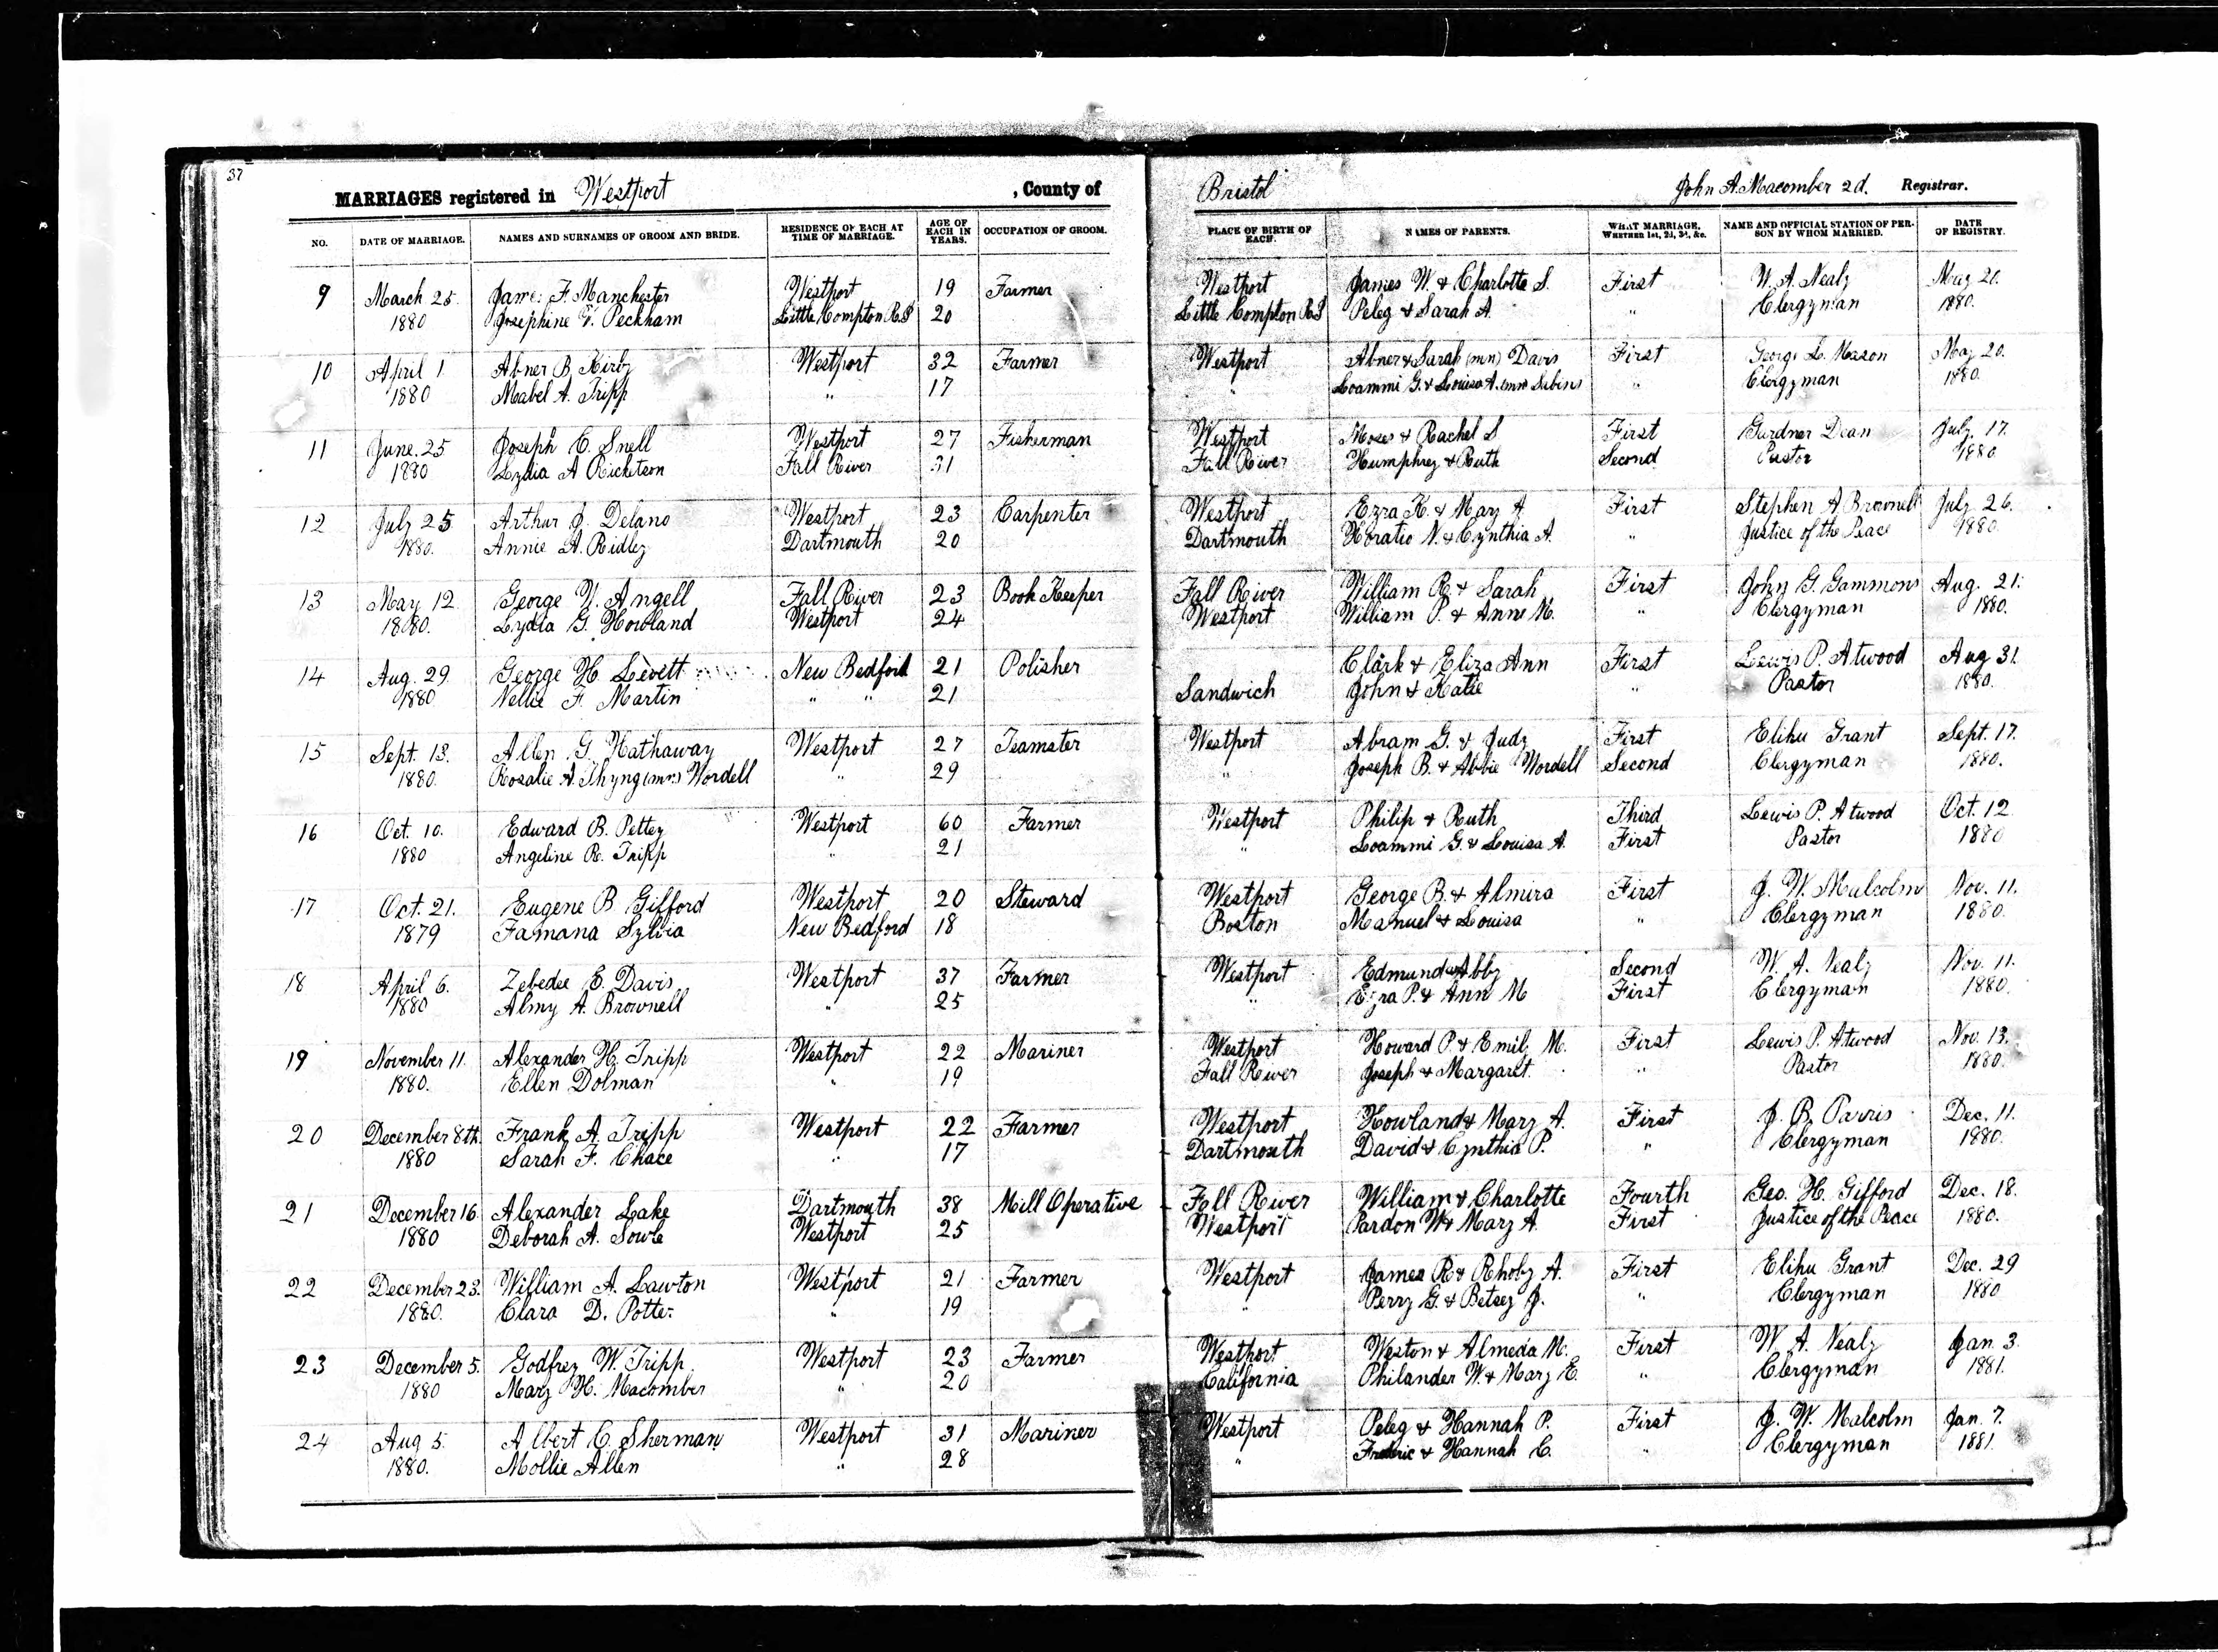 37
MARRIAGES registered in Westport, County of Bristol John A. Macomber 2d. Registrar.
NO. DATE OF MARRIAGE. NAMES AND SURNAMES OF GROOM AND BRIDE. RESIDENCE OF EACH AT TIME OF MARRIAGE. AGE OF EACH IN YEARS. OCCUPATION OF GROOM. PLACE OF BIRTH OF EACH. NAMES OF PARENTS. WHAT MARRIAGE, WHETHER 1st, 2d, 3d, &c. NAME AND OFFICIAL STATION OF PERSON BY WHOM MARRIED. DATE OF REGISTRY.
9 March 25. James F. Manchester Westport 19 Farmer Westport James W. & Charlotte S. First W. A. Nealy May 20.
1880 Josephine Peckham Little Compton R.I 20 Little Compton R.I Peleg & Sarah A. " Clergyman 1880.
10 April 1 Abner B. Kirby Westport 32 Farmer Westport Abner & Sarah (mn) Davis First George L. Mason May 20.
1880 Mabel A. Tripp " 17 " Loammi G. & Louisa A. (mn) Sabins " Clergyman 1880.
11 June. 25 Joseph C. Snell Westport 27 Fisherman Westport Moses & Rachel S First Gardner Dean July. 17.
1880 Lydia A Ricketson Fall River 31 Fall River Humphrey & Ruth Second Pastor 1880
12 July 25 Arthur J. Delano Westport 23 Carpenter Westport Ezra K. & Mary A. First Stephen A Brownell July 26.
1880. Annie A. Ridley Dartmouth 20 Dartmouth Horatio N. & Cynthia A. " Justice of the Peace 1880.
13 May 12 George W. Angell Fall River 23 Book Keeper Fall River William R. & Sarah First John G. Gammons Aug. 21.
1880. Lydia G. Howland Westport 24 Westport William P. & Anne M. " Clergyman 1880.
14 Aug. 29. George H. Levett New Bedford 21 Polisher Clark & Eliza Ann First Lewis P. Atwood Aug 31.
1880 Nellie F. Martin " " 21 Sandwich John & Katie " Pastor 1880.
15 Sept. 13. Allen G. Hathaway Westport 27 Teamster Westport Abram G. & Judy First Elihu Grant Sept. 17.
1880. Rosalie A. Thyng (mn) Wordell " 29 " Joseph B. & Abbie Wordell Second Clergyman 1880.
16 Oct. 10. Edward B. Pettey Westport 60 Farmer Westport Philip & Ruth Third Lewis P. Atwood Oct. 12
1880 Angeline R. Tripp " 21 " Loammi G. & Louisa A. First Pastor 1880
17 Oct. 21. Eugene B Gifford Westport 20 Steward Westport George B. & Almira First J. W. Malcolm Nov. 11.
1879 Famana Sylvia New Bedford 18 Boston Manuel & Louisa " Clergyman 1880.
18 April 6. Zebedee E. Davis Westport 37 Farmer Westport Edmund & Abby Second W. A. Nealy Nov. 11.
1880 Almy A. Brownell " 25 " Ezra P. & Ann M First Clergyman 1880.
19 November 11. Alexander H. Tripp Westport 22 Mariner Westport Howard P. & Emily M. First Lewis P. Atwood Nov. 13.
1880. Ellen Dolman " 19 Fall River Joseph & Margaret. " Pastor 1880.
20 December 8th. Frank A. Tripp Westport 22 Farmer Westport Howland & Mary A. First J. B. Parris Dec. 11.
1880 Sarah F. Chace " 17 Dartmouth David & Cynthia P. " Clergyman 1880.
21 December 16. Alexander Lake Dartmouth 38 Mill Operative Fall River William & Charlotte Fourth Geo. H. Gifford Dec. 18.
1880 Deborah A. Sowle Westport 25 Westport Pardon W. & Mary A. First Justice of the Peace 1880.
22 December 23. William A. Lawton Westport 21 Farmer Westport James R. & Rhoby A. First Elihu Grant Dec. 29
1880. Clara D. Potter " 19 " Perry G. & Betsey J. " Clergyman 1880
23 December 5. Godfrey W. Tripp. Westport 23 Farmer Westport Weston & Almeda M. First W. A. Nealy Jan. 3.
1880 Mary H. Macomber " 20 California Philander W. & Mary E. " Clergyman 1881.
24 Aug 5. Albert C. Sherman Westport 31 Mariner Westport Peleg & Hannah P. First J. W. Malcolm Jan. 7.
1880. Mollie Allen " 28 " Frederic & Hannah C. " Clergyman 1881.